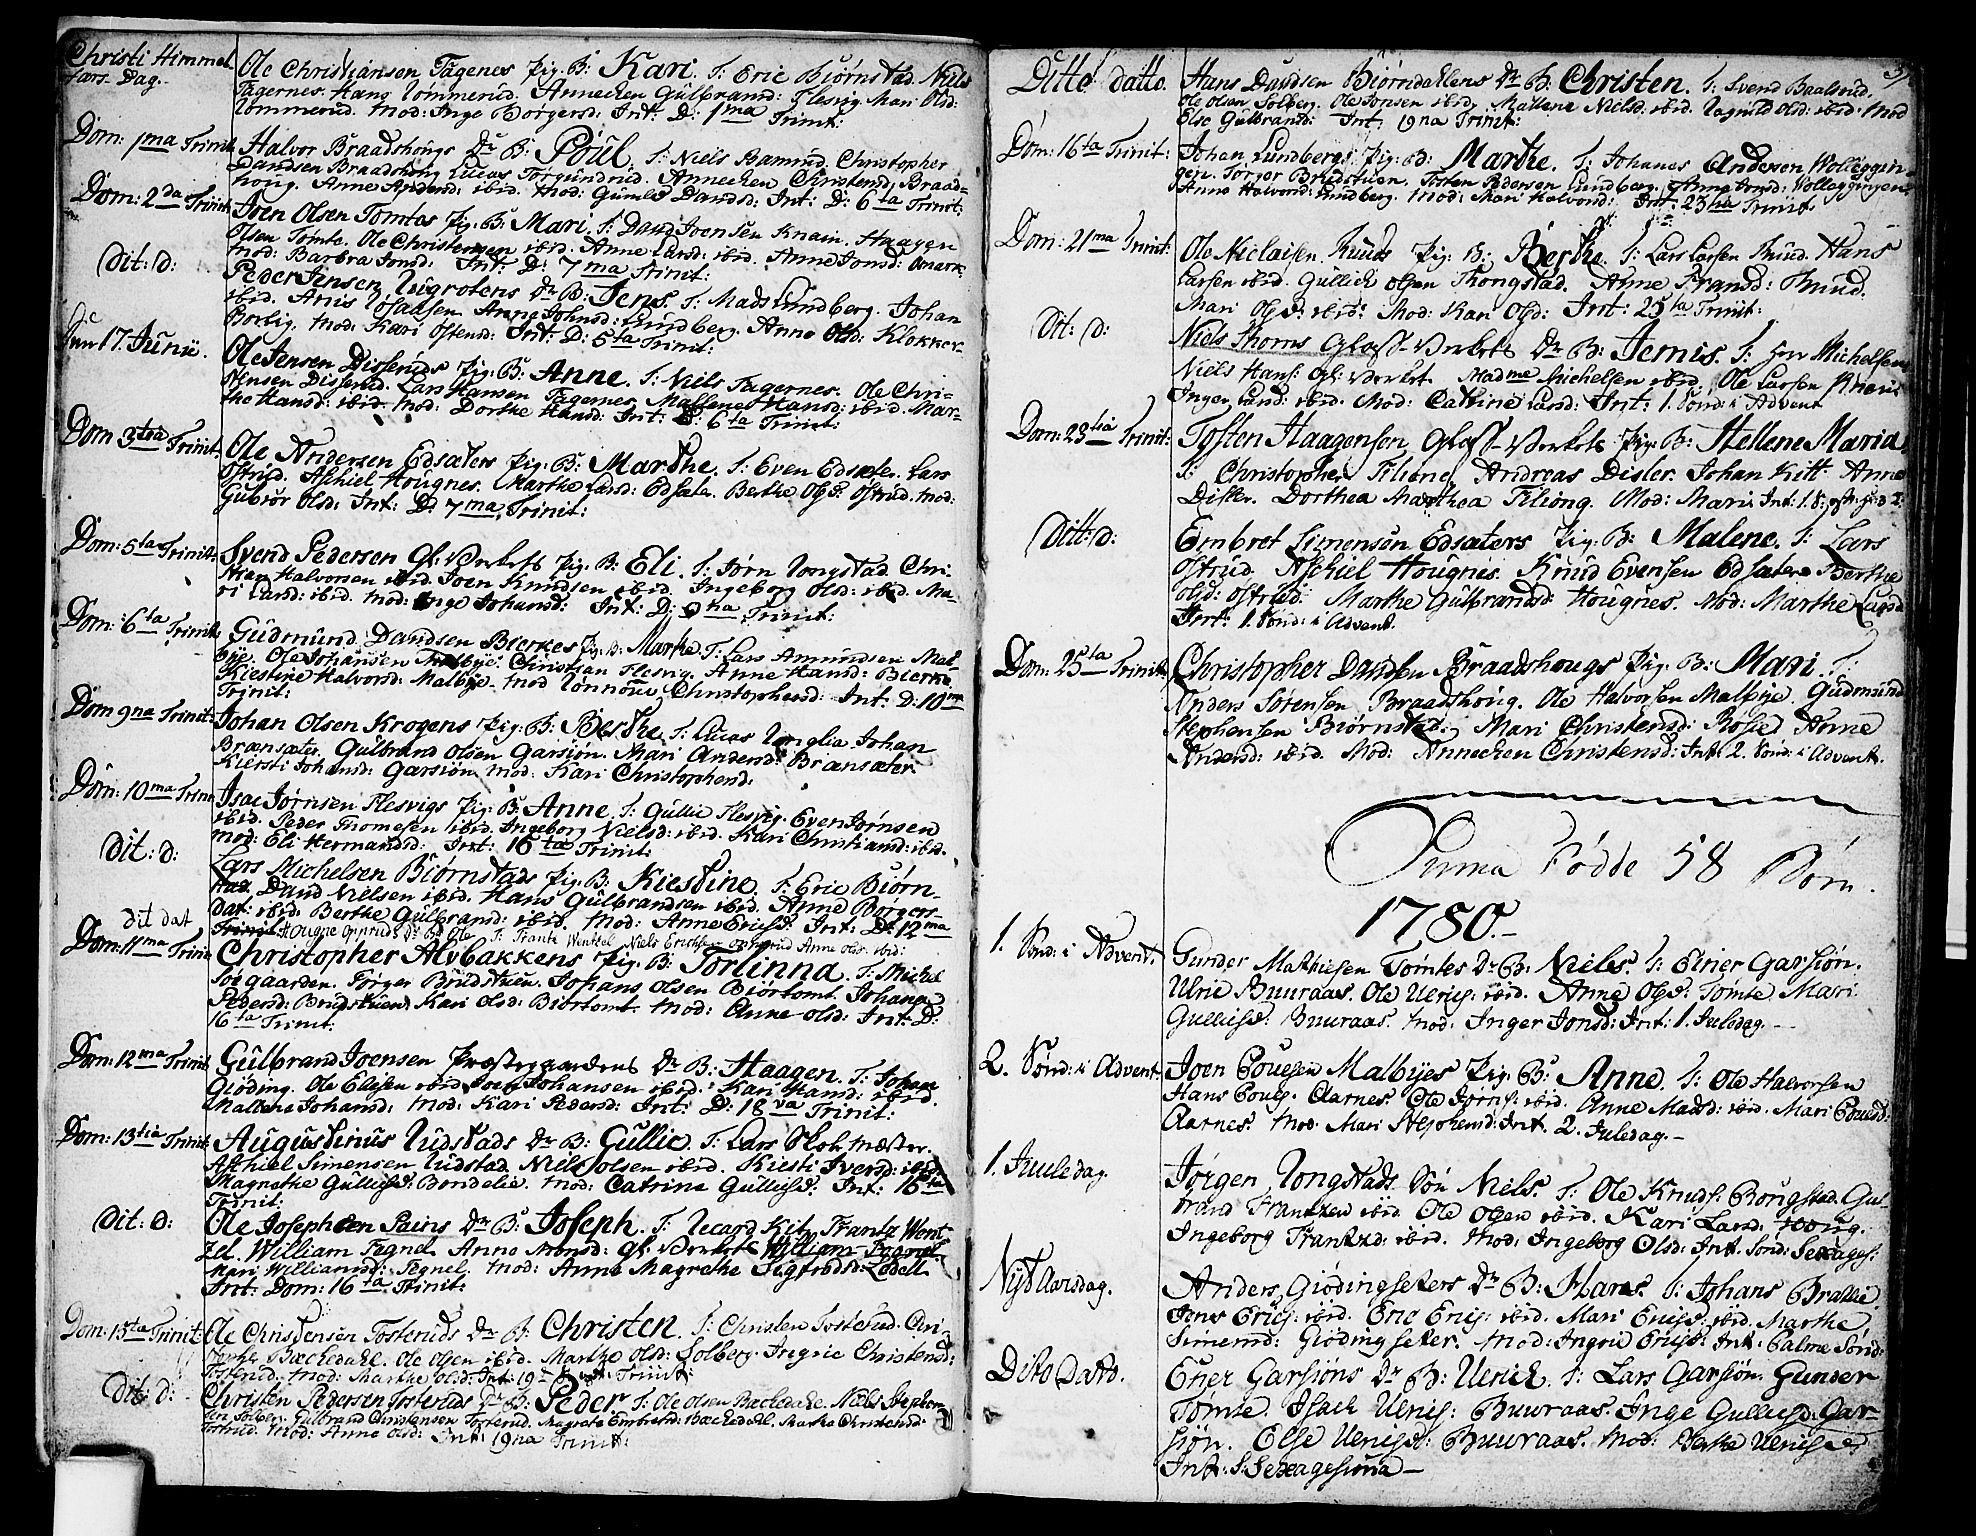 Christi Himmel
fars Dag.
Ole Christiansen Tagenes Pig: B: Kari. T: Eric Biørnstad. Niels
Tagernes. Hans Tømmerud. Annechen Gulbrand: Flesvig. Mari Olsd:
Tømmerud. Mod: Inge Børgersd: Int: D: 1ma Trinit:
Dom: 1ma Trinit:
Halvor Braadshougs Dr: B: Poul. T: Niels Bamrud. Christopher
Davidsen Braadshoug. Lucas Torgundrud. Annechen Christensd: Braads-
houg. Anne Andersd: ibid. Mod: Gunild Davidsd: Int: D: 6ta Trinit:
Dom: 2da Trinit:
Joen Olsen Tomtas Pig: B: Mari. T: David Joensen Knain. Haagen
Olsen Tømte. Ole Christensen ibid. Anne Larsd: ibid. Anne Jonsd:
Mod: Barbra Jonsd: Int: D: 7ma Trinit:
Dit: D:
Peder Jensen Dr: B: Jens. T: Mads Lundberg. Johan
ibid. Anne Johnsd: Lundberg. Anne Olsd: Klokker-
Bolig. Mod: Kari Østensd: Int: D: 5ta Trinit:
17. Junii.
Ole Jensen Disseruds Pig: B: Anne. T: Niels Tagernes. Ole Chri-
stensen Disserud. Lars Hansen Tagernes. Mallene Hansd: ibid. Mar-
the Hansd: ibid. Mod: Dorthe Hansd: Int: D: 6ta Trinit:
Dom 3tia Trinit:
Ole Andersen Edsæters Pig: B: Marthe. T: Even Edsæter. Lars
Østrud. Aschiel Hougnes. Marthe Larsd: Edsæter. Berthe Olsd: Østrud. Mod:
Gubiør Olsd: Int: D: 7ma Trinit:
Dom: 5ta Trinit:
Svend Pedersen Gl: Verkets Pig: B: Eli. T: Jørn Tongstad. Chri-
stian Halvorsen ibid. Joen Knudsen ibid. Ingeborg Olsd: ibid. Ma-
ri Larsd: ibid. Mod: Inge Johansd: Int: D: 9na Trinit:
Dom: 6ta Trinit:
Gudmund Davidsen Bierkes Pig: B: Marthe. T: Lars Amundsen Mal-
bye. Ole Johansen Malbye. Christian Flesvig. Anne Hansd: Bierke.
Kiestine Halvorsd: Malbye. Mod Tønnoue Christophersd: Int: D: 10ma
Trinit:
Dom 9na Trinit:
Johan Olsen Krogens Pig: B: Berthe. T: Lucas Johan
Brænsæter. Gulbrand Olsen Garsiøn. Mari Andersd: Brænsæter.
Kiersti Johansd: Garsiøn. Mod: Kari Christophersd:
Dom: 10ma Trinit:
Isac Jørnsen Flesvigs Pig: B: Anne. T: Gullic Flesvig. Even Jørnsen
ibid. Peder Thomesen ibid. Ingeborg Nielsd: ibid. Kari Christiansd: ibid.
Mod: Eli Hermansd: Int: 16ta Trinit:
Dit: d:
Lars Michelsen Biørnstads Pig: B: Kiestine. T: Eric Biørn-
stad. David Nielsen ibid. Hans Gulbrandsen ibid. Anne Børgers-
dat: ibid. Berthe Gulbransd: ibid. Mod: Anne Ericsd: Int: D: 12ma
Trinit:
dit dat
Hougne Opruds Dr: B: Ole. T: Frantz Wentzel. Niels Erichsen Opperud. Anne Olsd: ibid:
Dom: 11ma Trinit:
Christopher Alvbakkens Pig: B: Torlinna. T: Michel
Søegaarden. Torger Brudstuen. Johans Olsen Biørtomt. Johane
Pedersd: Brudstuen. Kari Olsd: Biørtomt. Mod: Anne Olsd: Int: D:
16ta Trinit:
Dom: 12ma Trinit:
Gulbrand Joensen Præstegaardens Dr: B: Haagen. T: Johan
Giøding. Ole Elefsen ibid. Joen Johansen ibid. Kari Hansd: ibid.
Mallene Johansd: Mod: Kari Pedersd: Int: D: 18va Trinit:
Dom: 13tia Trinit:
Augustinus Rudstads Dr: B: Gullic. T: Lars Skolemæster.
Aschiel Simensen Rudstad. Niels Olsen ibid. Kiesti Iversd: ibid.
Magrethe Gullicsd: Bondelie. Mod: Catrine Gullicsd: Int: 16ta
Trinit:
Dit: D:
Ole Josephsen Pains Dr: B: Joseph. T: Ricard Kit. Frantz Went-
zel. William Fegnel. Anne Monsd: Gl: Verkets
Mari Williamsd: Fegnel. Mod: Anne Magrethe Sigfredsd: Ledell
Int: Dom: 16ta Trinit:
Dom: 15ta Trinit:
Ole Christensen Tosteruds Dr: B: Christen. T: Christen Tosterud. Chri-
stopher Bæckedahl. Ole Olsen ibid. Marthe Olsd: Solberg. Ingrie Christensd:
Tosterud. Mod: Marthe Olsd: Int: 19na Trinit:
Dit: d:
Christen Pedersen Tosteruds Dr: B: Peder. T: Ole Olsen Bæckedahl. Niels Stephen-
sen Solberg. Gulbrand Christensen Tosterud. Magrete Embretsd: Bæckedahl. Marthe Christensd:
Tosterud. Mod: Anne Olsd: Int: 19na Trinit:
Ditto datto.
Hans Davidsen Biørndahlens Dr: B: Christen. T: Svend Baalsrud.
Ole Olsen Solberg. Ole Jonsen ibid. Mallene Nielsd: ibid. Ragnild Olsd: ibid. Mod
Else Gulbransd: Int: 19na Trinit:
Dom: 16ta Trinit:
Johan Lundbergs Pig: B: Marthe. T: Johanes Andersen Wolleggin-
gen. Torger Brudstuen. Tosten Pedersen Lundberg. Anne Jonsd: Wolleggingen.
Anne Halvorsd: Lundberg. Mod: Mari Halvorsd: Int: 23tia Trinit:
Dom: 21ma Trinit:
Ole Niclaisen Ruuds Pig: B: Berthe. T: Lars Larsen Ruud. Hans
Larsen ibid. Gullich Olsen Kongstad. Anne Fransd: Ruud.
Mari Olsd: ibid: Mod: Kari Olsd: Int: 25ta Trinit:
Dit: D:
Niels Thorns Glass-Verkets Dr: B: Jernis. T: Hr: Michelsen
Niels Hans: Gl: Verket. Madme Michelsen ibid. Ole Larsen
Inger Lansd: ibid. Mod: Catrine Larsd: Int: 1. Sønd: i Advent
Dom: 23tia Trinit:
Tosten Haagensen Glass-Verkets Pig: B: Hellene Maria.
T: Christopher Filiong. Andreas Disler. Johan Kitt. Anne
Disler. Dorthea Marthea Filiong. Mod: Mari. Int: 1. S:
Ditt: D:
Embret Simensøn Edsæters Pig: B: Malene. T: Lars
Østrud. Aschiel Hougnes. Knud Evensen Edsæter. Berthe
Olsd: Østrud. Marthe Gulbrandsd: Hougnes. Mod: Marthe Larsd:
Int: 1. Sønd: i Advent.
Dom: 25ta Trinit:
Christopher Davidsen Braadshougs Pig: B: Mari. T:
Anders Sørensen Braadshoug. Ole Halvorsen Malbye. Gudmund
Stephensen Biørnsted. Mari Christensd: Anne
Andersd: ibid. Mod: Annechen Christensd: Int: 2. Sønd: i Advent.
Summa Fødde 58 Børn.
1780.
1. Sønd: i Advent.
Gunder Mathiesen Tomtes Dr: B: Niels. T: Einer Garsiøn.
Ulric Buuraas. Ole Ulrics: ibid. Anne Olsd: Tømte. Mari
Gullicsd: Buuraas. Mod. Inger Jonsd: Int: 1. Juledag.
2. Sønd: i Advent.
Joen Pouelsen Malbyes Pig: B: Anne. T: Ole Halvorsen
Hans Pouels. Aarnes. Ole Jørns: ibid. Anne Madsd: ibid. Mari Pouelsd:
Aarnes. Mod. Mari Stephensd: Int. 2. Juledag.
1. Juuledag.
Jørgen Tongstads Søn Niels. T: Ole Knuds: Bougstad. Gul-
brand Frantzen ibid. Ole Olsen ibid. Kari Larsd:
Ingeborg Frantzd: ibid. Mod: Ingeborg Olsd: Int. Sønd: Sexages:
Nyt Aarsdag.
Anders Giødingseters Dr: B: Hans. T: Johans
Jens Erics: ibid. Eric Erics: ibid. Mari Ericsd: ibid. Marthe
Simensd: Giødingseter. Mod: Ingrie Ericsd: Int: Palme Sønd:
Dito Dato.
Ener Garsiøns Dr: B: Ulrich. T: Lars Garsiøn. Gunder
Tømte. Isach Ulrics: Buuraas. Inge Gullicsd: Gar-
siøn. Else Ulricsd: Buuraas. Mod: Ulricsd:
Int: S: Sexagesima